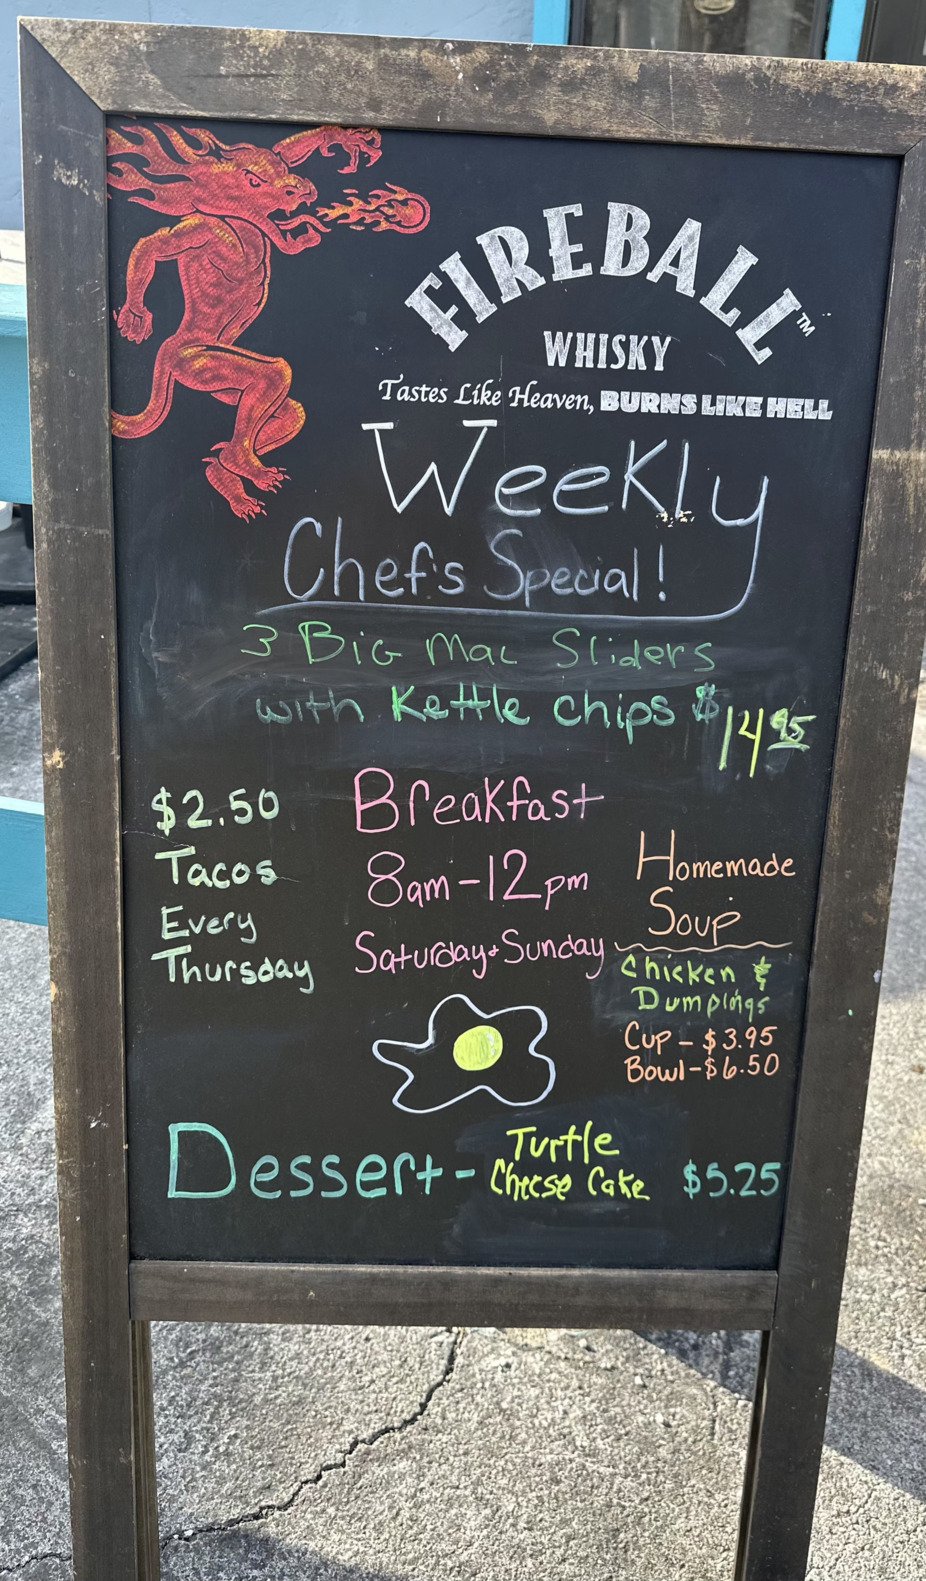 FIREBALL™
WHISKY
Tastes Like Heaven, BURNS LIKE HELL
Weekly
Chef's Special!
3 Big Mac Sliders
with Kettle chips $14.95
$2.50
Tacos
Every
Thursday
Breakfast
8am-12pm
Saturday + Sunday
Homemade
Soup
Chicken &
Dumplings
Cup - $3.95
Bowl - $6.50
Dessert - Turtle
Cheese Cake $5.25